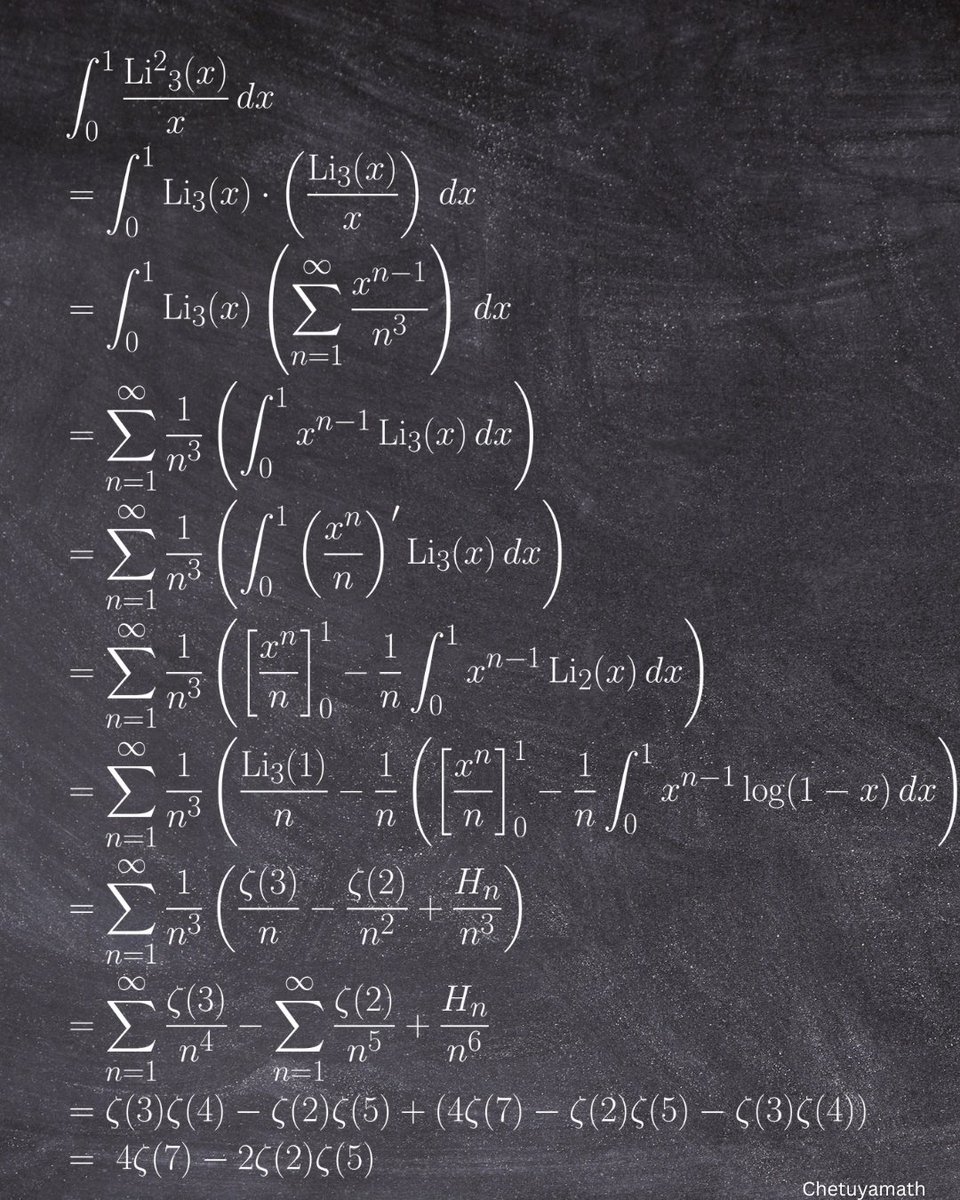 \int_0^1 \frac{\mathrm{Li}^2{}_3(x)}{x}\,dx
= \int_0^1 \mathrm{Li}_3(x) \cdot \left(\frac{\mathrm{Li}_3(x)}{x}\right)\,dx
= \int_0^1 \mathrm{Li}_3(x) \left(\sum_{n=1}^{\infty} \frac{x^{n-1}}{n^3}\right)\,dx
= \sum_{n=1}^{\infty} \frac{1}{n^3} \left(\int_0^1 x^{n-1}\,\mathrm{Li}_3(x)\,dx\right)
= \sum_{n=1}^{\infty} \frac{1}{n^3} \left(\int_0^1 \left(\frac{x^n}{n}\right)' \mathrm{Li}_3(x)\,dx\right)
= \sum_{n=1}^{\infty} \frac{1}{n^3} \left(\left[\frac{x^n}{n}\right]_0^1 - \frac{1}{n}\int_0^1 x^{n-1}\,\mathrm{Li}_2(x)\,dx\right)
= \sum_{n=1}^{\infty} \frac{1}{n^3} \left(\frac{\mathrm{Li}_3(1)}{n} - \frac{1}{n}\left(\left[\frac{x^n}{n}\right]_0^1 - \frac{1}{n}\int_0^1 x^{n-1}\log(1-x)\,dx\right)
= \sum_{n=1}^{\infty} \frac{1}{n^3} \left(\frac{\zeta(3)}{n} - \frac{\zeta(2)}{n^2} + \frac{H_n}{n^3}\right)
= \sum_{n=1}^{\infty} \frac{\zeta(3)}{n^4} - \sum_{n=1}^{\infty} \frac{\zeta(2)}{n^5} + \frac{H_n}{n^6}
= \zeta(3)\zeta(4) - \zeta(2)\zeta(5) + (4\zeta(7) - \zeta(2)\zeta(5) - \zeta(3)\zeta(4))
= 4\zeta(7) - 2\zeta(2)\zeta(5)
Chetuyamath